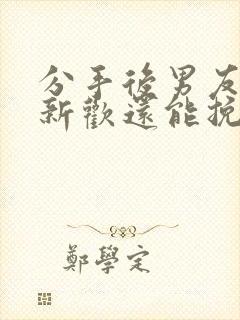 分手後男友
新歡還能挽
鄭學定